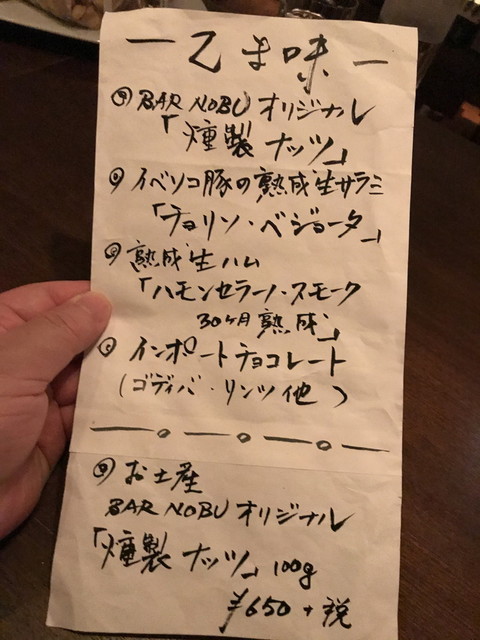 ー乙ま味ー
BAR NOBU オリジナル
「燻製ナッツ」
イベリコ豚の熟成生サラミ
「チョリソ・ベジョータ」
熟成生ハム
「ハモンセラーノ・スモーク
30ヶ月熟成」
インポートチョコレート
(ゴディバ・リンツ他)
お土産
BAR NOBU オリジナル
「燻製ナッツ」100g
¥650+税